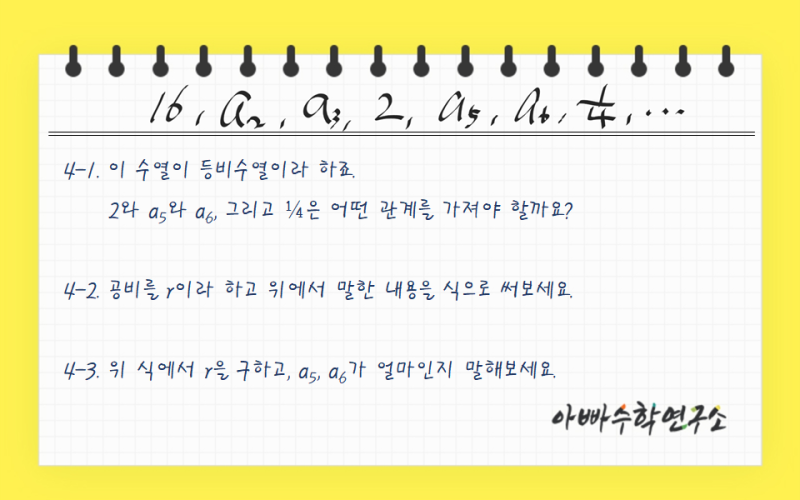 16, a₂, a₃, 2, a₅, a₆, ¼, ···
4-1. 이 수열이 등비수열이라 하죠.
2와 a₅와 a₆, 그리고 ¼은 어떤 관계를 가져야 할까요?
4-2. 공비를 r이라 하고 위에서 말한 내용을 식으로 써보세요.
4-3. 위 식에서 r을 구하고, a₅, a₆가 얼마인지 말해보세요.
아빠수학연구소